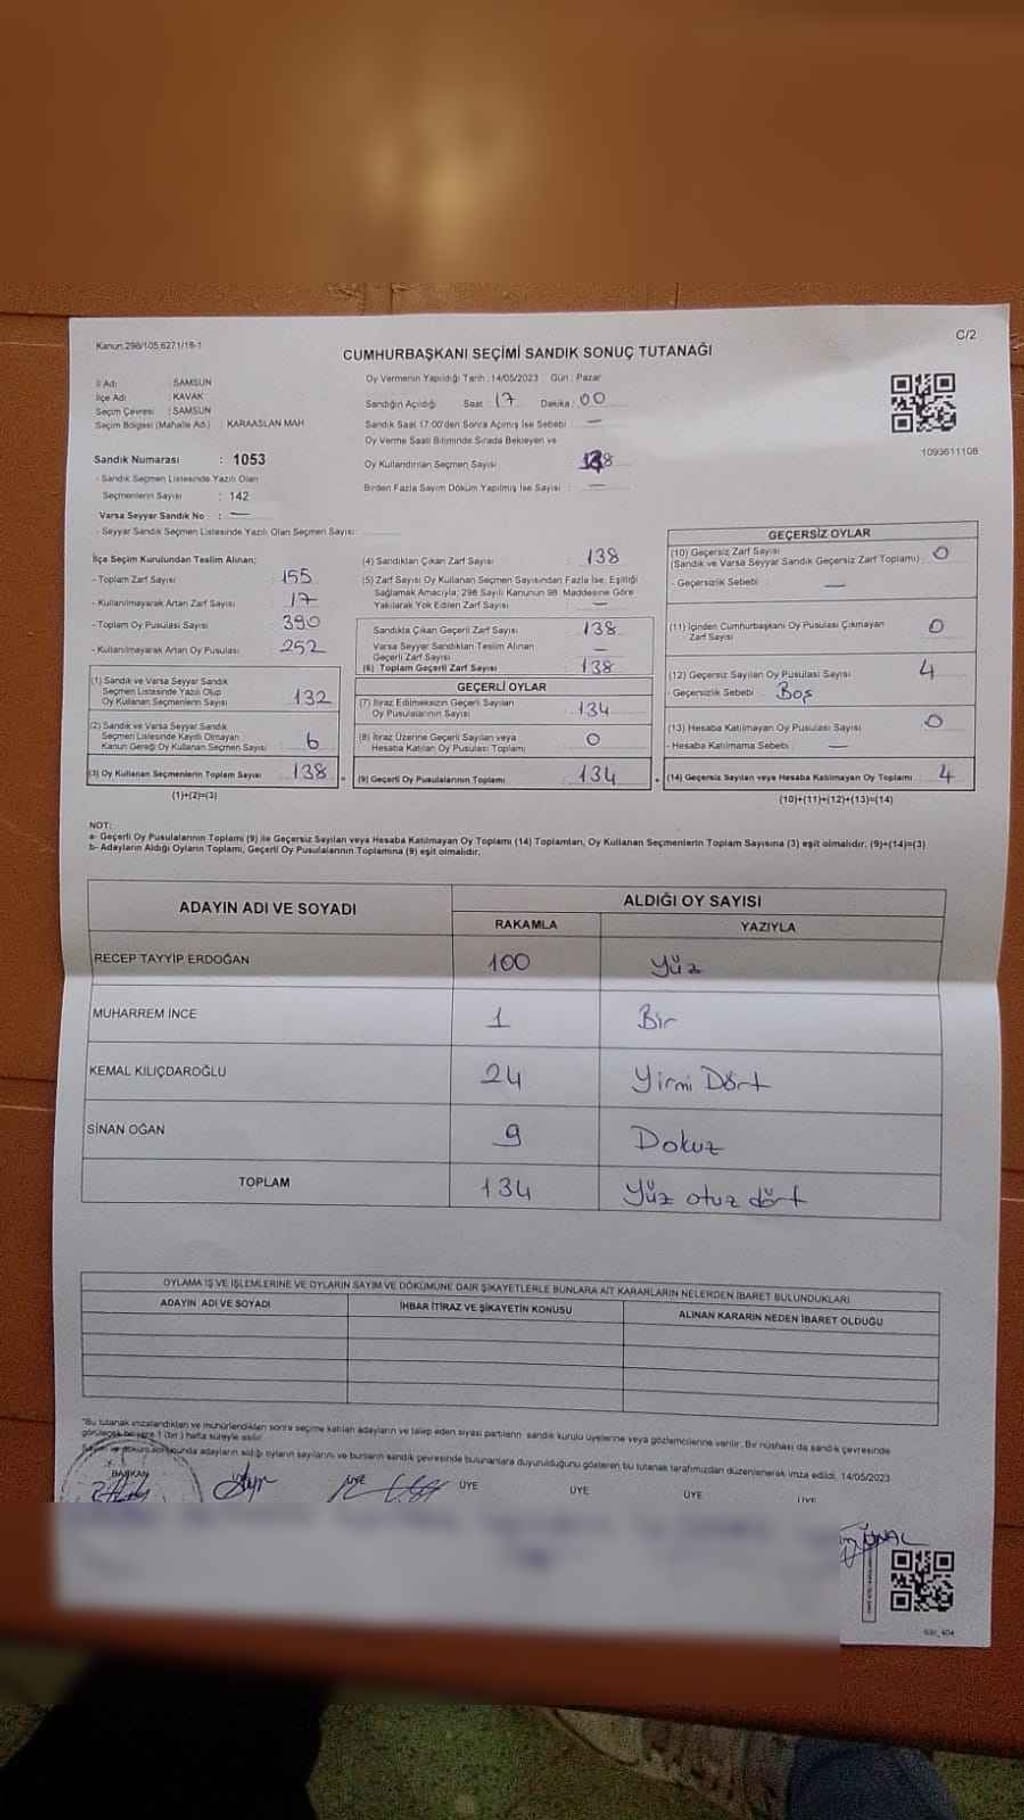 C/2
Kanun:298/105,6271/16-1
CUMHURBAŞKANI SEÇİMİ SANDIK SONUÇ TUTANAĞI
İl Adı : SAMSUN
İlçe Adı : KAVAK
Seçim Çevresi : SAMSUN
Seçim Bölgesi (Mahalle Ad.) : KARAASLAN MAH
Oy Vermenin Yapıldığı Tarih : 14/05/2023 Gün : Pazar
Sandığın Açıldığı Saat : 17 Dakika : 00
Sandık Saat 17:00'den Sonra Açımış İse Sebebi : —
Oy Verme Saati Bitiminde Sırada Bekleyen ve
Oy Kullandırılan Seçmen Sayısı
Birden Fazla Sayım Döküm Yapılmış İse Sayısı : —
1093611108
Sandık Numarası : 1053
- Sandık Seçmen Listesinde Yazılı Olan
Seçmenlerin Sayısı : 142
Varsa Seyyar Sandık No : —
- Seyyar Sandık Seçmen Listesinde Yazılı Olan Seçmen Sayısı:
İlçe Seçim Kurulundan Teslim Alınan;
- Toplam Zarf Sayısı : 155
- Kullanılmayarak Artan Zarf Sayısı : 17
- Toplam Oy Pusulası Sayısı : 390
- Kullanılmayarak Artan Oy Pusulası : 252
(1) Sandık ve Varsa Seyyar Sandık
Seçmen Listesinde Yazılı Olup
Oy Kullanan Seçmenlerin Sayısı 132
(2) Sandık ve Varsa Seyyar Sandık
Seçmen Listesinde Kayıtlı Olmayan
Kanun Gereği Oy Kullanan Seçmen Sayısı 6
(3) Oy Kullanan Seçmenlerin Toplam Sayısı 138
(1)+(2)=(3)
(4) Sandıktan Çıkan Zarf Sayısı : 138
(5) Zarf Sayısı Oy Kullanan Seçmen Sayısından Fazla İse, Eşitliği
Sağlamak Amacıyla; 298 Sayılı Kanunun 98. Maddesine Göre
Yakılarak Yok Edilen Zarf Sayısı : —
Sandıkta Çıkan Geçerli Zarf Sayısı : 138
Varsa Seyyar Sandıktan Teslim Alınan
Geçerli Zarf Sayısı : —
(6) Toplam Geçerli Zarf Sayısı : 138
GEÇERLİ OYLAR
(7) İtiraz Edilmeksizin Geçerli Sayılan
Oy Pusulalarının Sayısı : 134
(8) İtiraz Üzerine Geçerli Sayılan veya
Hesaba Katılan Oy Pusulası Toplamı : 0
(9) Geçerli Oy Pusulalarının Toplamı : 134
GEÇERSİZ OYLAR
(10) Geçersiz Zarf Sayısı
(Sandık ve Varsa Seyyar Sandık Geçersiz Zarf Toplamı) : 0
- Geçersizlik Sebebi : —
(11) İçinden Cumhurbaşkanı Oy Pusulası Çıkmayan
Zarf Sayısı : 0
(12) Geçersiz Sayılan Oy Pusulası Sayısı : 4
- Geçersizlik Sebebi : Boş
(13) Hesaba Katılmayan Oy Pusulası Sayısı : 0
- Hesaba Katılmama Sebebi : —
(14) Geçersiz Sayılan veya Hesaba Katılmayan Oy Toplamı : 4
(10)+(11)+(12)+(13)=(14)
NOT:
a- Geçerli Oy Pusulalarının Toplamı (9) ile Geçersiz Sayılan veya Hesaba Katılmayan Oy Toplamı (14) Toplamları, Oy Kullanan Seçmenlerin Toplam Sayısına (3) eşit olmalıdır. (9)+(14)=(3)
b- Adayların Aldığı Oyların Toplamı, Geçerli Oy Pusulalarının Toplamına (9) eşit olmalıdır.
ADAYIN ADI VE SOYADI
ALDIĞI OY SAYISI
RAKAMLA YAZIYLA
RECEP TAYYİP ERDOĞAN 100 Yüz
MUHARREM İNCE 1 Bir
KEMAL KILIÇDAROĞLU 24 Yirmi Dört
SİNAN OĞAN 9 Dokuz
TOPLAM 134 Yüz otuz dört
OYLAMA İŞ VE İŞLEMLERİNE VE OYLARIN SAYIM VE DÖKÜMÜNE DAİR ŞİKAYETLERLE BUNLARA AİT KARARLARIN NELERDEN İBARET BULUNDUKLARI
ADAYIN ADI VE SOYADI İHBAR İTİRAZ VE ŞİKAYETİN KONUSU ALINAN KARARIN NEDEN İBARET OLDUĞU
"Bu tutanak imzalandıktan ve mühürlendikten sonra seçime katılan adayların ve talep eden siyasi partilerin sandık kurulu üyelerine veya gözlemcilerine verilir. Bir nüshası da sandık çevresinde
görülecek bir yere 1 (bir) hafta süreyle asılır.
adayların aldığı oyların sayılarını ve bunların sandık çevresinde bulunanlara duyurulduğunu gösteren bu tutanak tarafımızdan düzenlenerek imza edildi. 14/05/2023
BAŞKAN ÜYE ÜYE ÜYE ÜYE ÜYE
ÜNAL